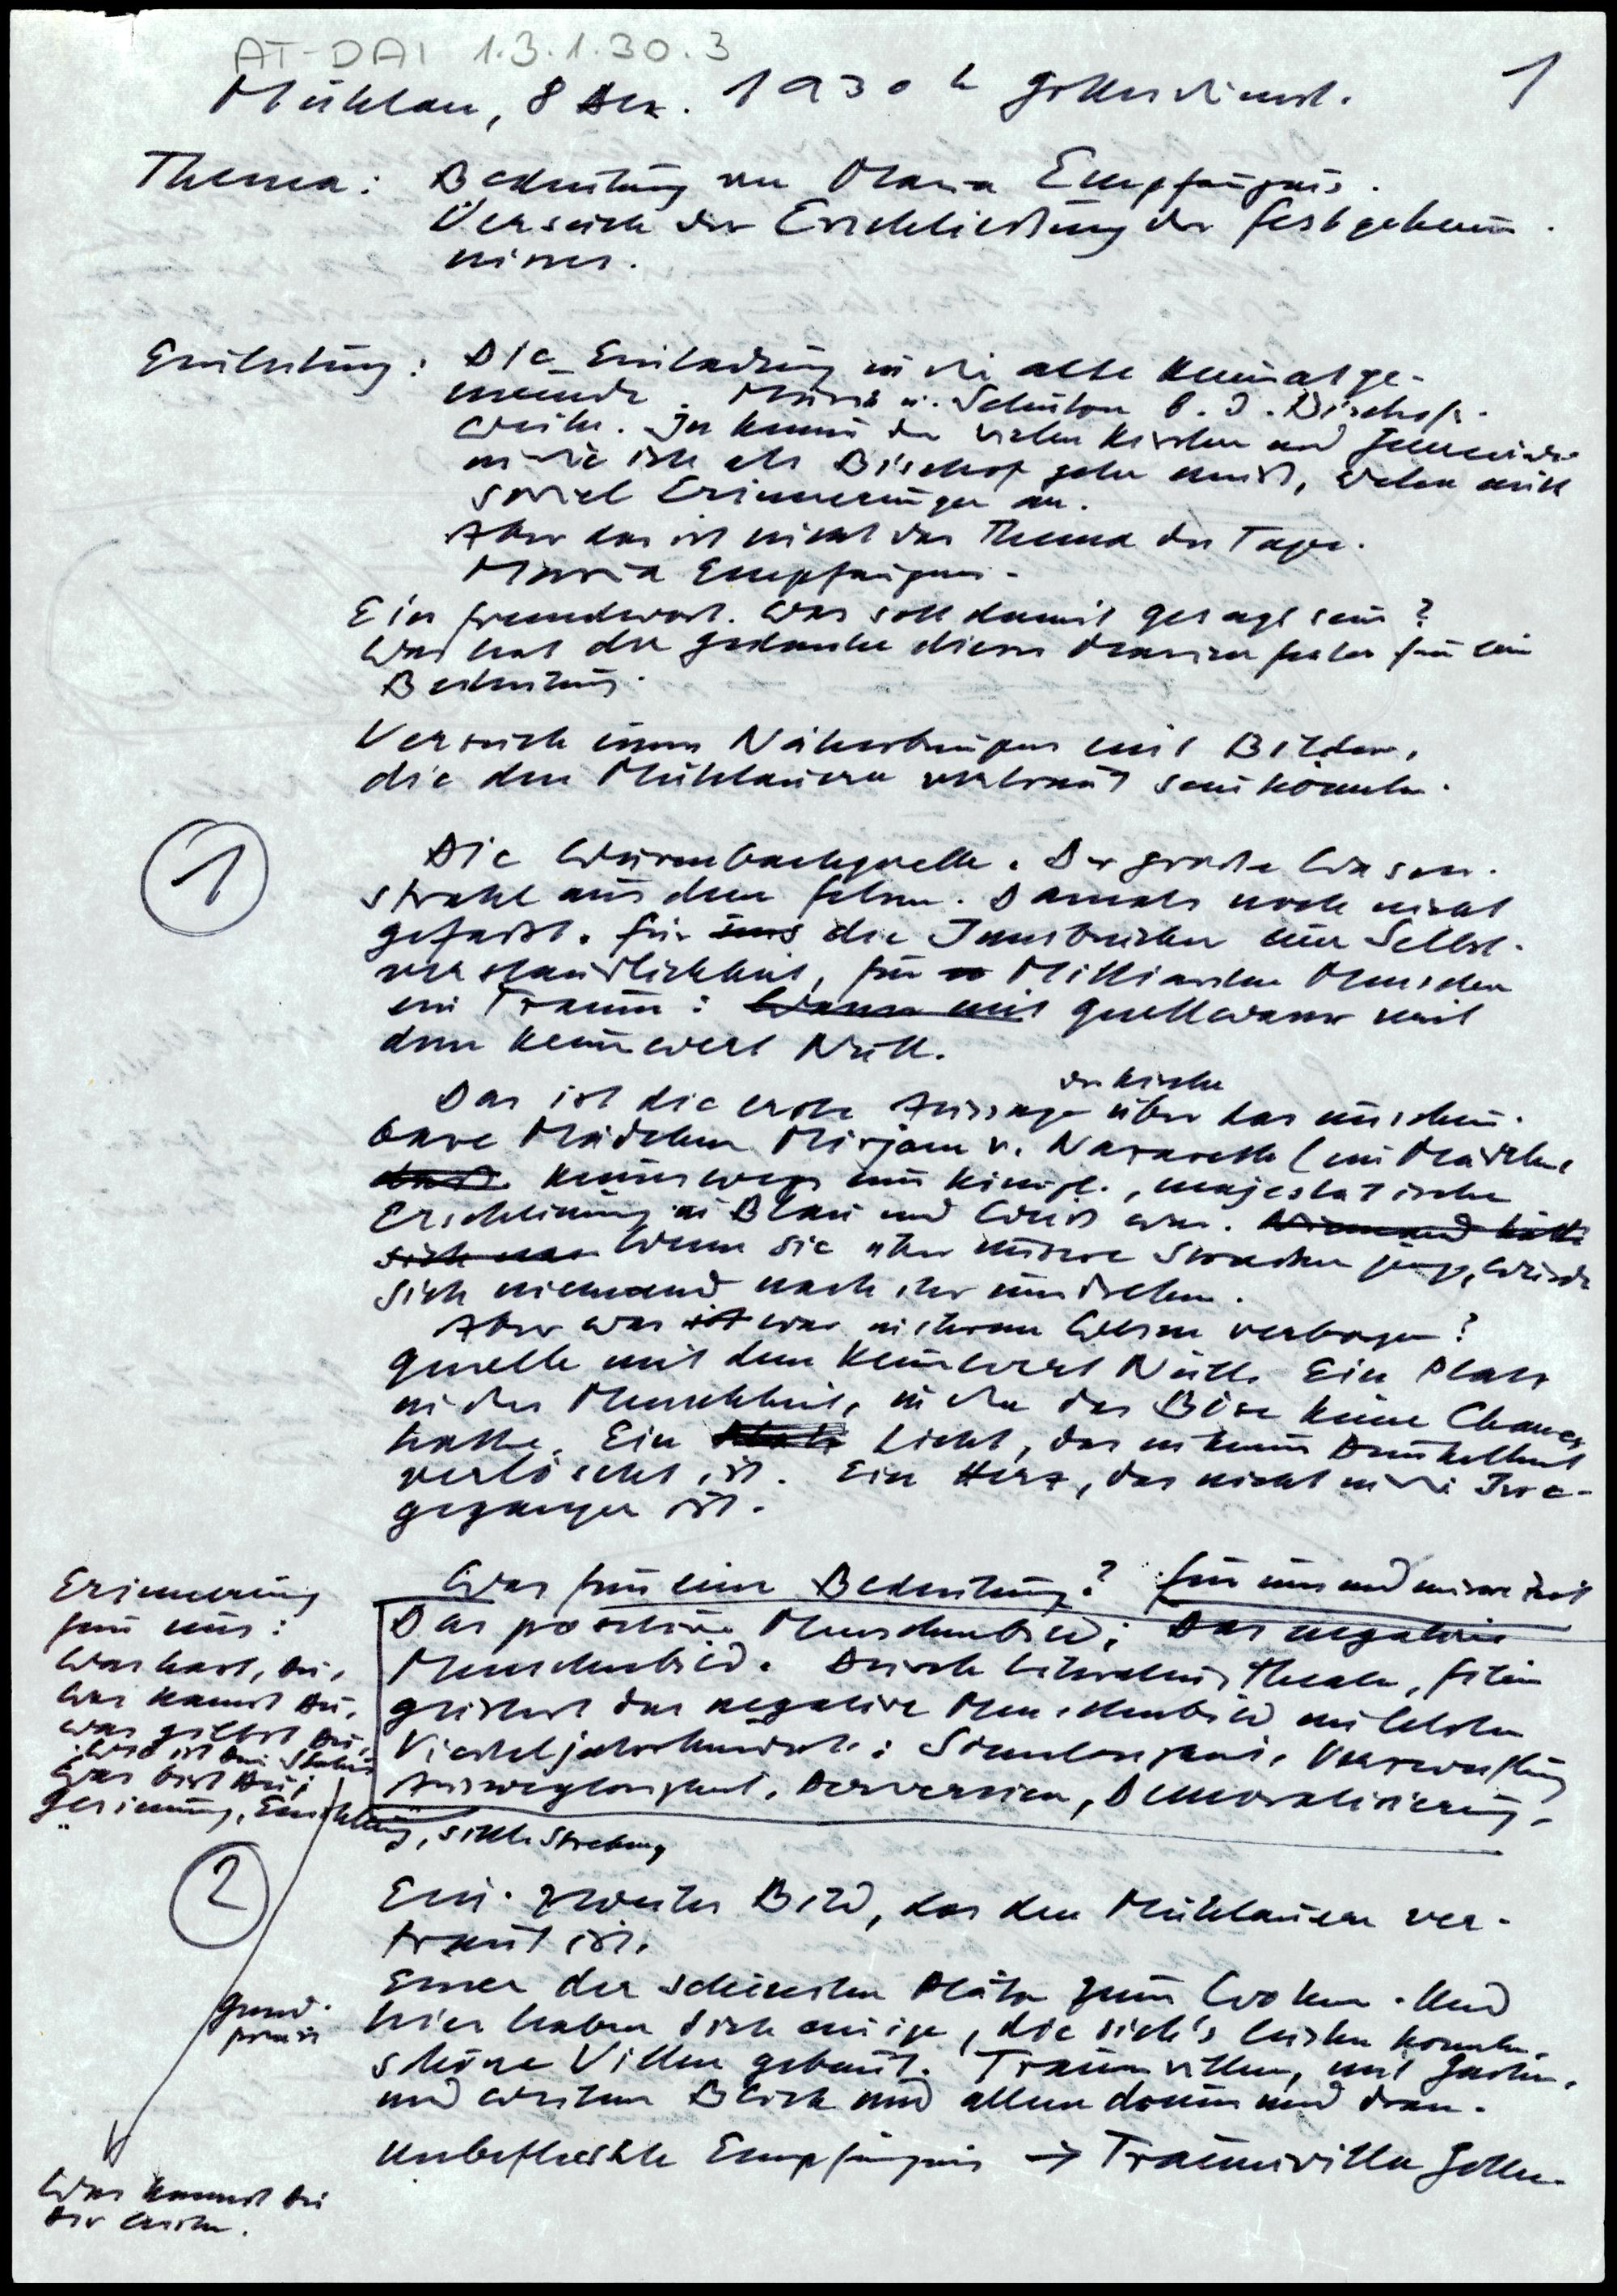 AT-DAI 1.3.1.30.3
1
Mühlau, 8 Dez. 1930 h Gottesdienst.
Thema: Bedeutung von Maria Empfängnis.
Versuch der Erschließung des Festgeheim-
nisses.
Einleitung: Die Einladung in die alte Heimatge-
meinde. Musik u. Schützen b. d. Bischofs-
weihe. In keiner der vielen Kirchen und Gemeinden
in die ich als Bischof gehen muß, wehen mich
soviel Erinnerungen an.
Aber das ist nicht das Thema des Tages.
Maria Empfängnis.
Ein Fremdwort. Was soll damit gesagt sein?
Was hat der Gedanke dieses Marienfestes für eine
Bedeutung.
Versuch eines Näherbringens mit Bildern,
die den Mühlauern vertraut sein könnten.
1
Die Wurmbachquelle. Der große Wasser-
strahl aus dem Felsen. Damals noch nicht
gefaßt. Für uns die Innsbrucker eine Selbst-
verständlichkeit, für Milliarden Menschen
ein Traum: Wasser mit Quellwasser mit
dem Keimwert Null.
Das ist die erste Aussage der Kirche über das unschein-
bare Mädchen Mirjam v. Nazareth (ein Mädchen,
das keineswegs eine königl., majestätische
Erscheinung in Blau und Weiß war. Niemand hätte
sich nach Wenn sie über unsere Straßen ginge, würde
sich niemand nach ihr umdrehen.
Aber was ist war in ihrem Wesen verborgen?
Quelle mit dem Keimwert Null. Ein Platz
in der Menschheit, in der das Böse keine Chance
hatte. Ein Licht, das in keiner Dunkelheit
verlöscht ist. Ein Herz, das nicht in die Irre
gegangen ist.
Was für eine Bedeutung? Für uns und unsere Zeit
Das positive Menschenbild: Das negative
Menschenbild. Durch Literatur, Theater, Film
geistert das negative Menschenbild im letzten
Vierteljahrhundert: Sinnlosigkeit, Verzweiflung
Ausweglosigkeit, Perversion, Demoralisierung.
Erinnerung
für uns:
Was hast, Du,
was kannst Du,
was giltst Du,
was ist Dein Status
Was bist Du;
Gesinnung, Einstellung, sittl. Strebung
2
Ein zweites Bild, das den Mühlauern ver-
traut ist.
Einer der schönsten Plätze zum Wohnen. Und
hier haben sich einige, die sich's leisten konnten,
schöne Villen gebaut. Traumvillen, mit Garten,
und weitem Blick und allem drum und dran.
Unbefleckte Empfängnis → Traumvilla Gottes.
Grund-
preis
Was kannst Du
Dir leisten.